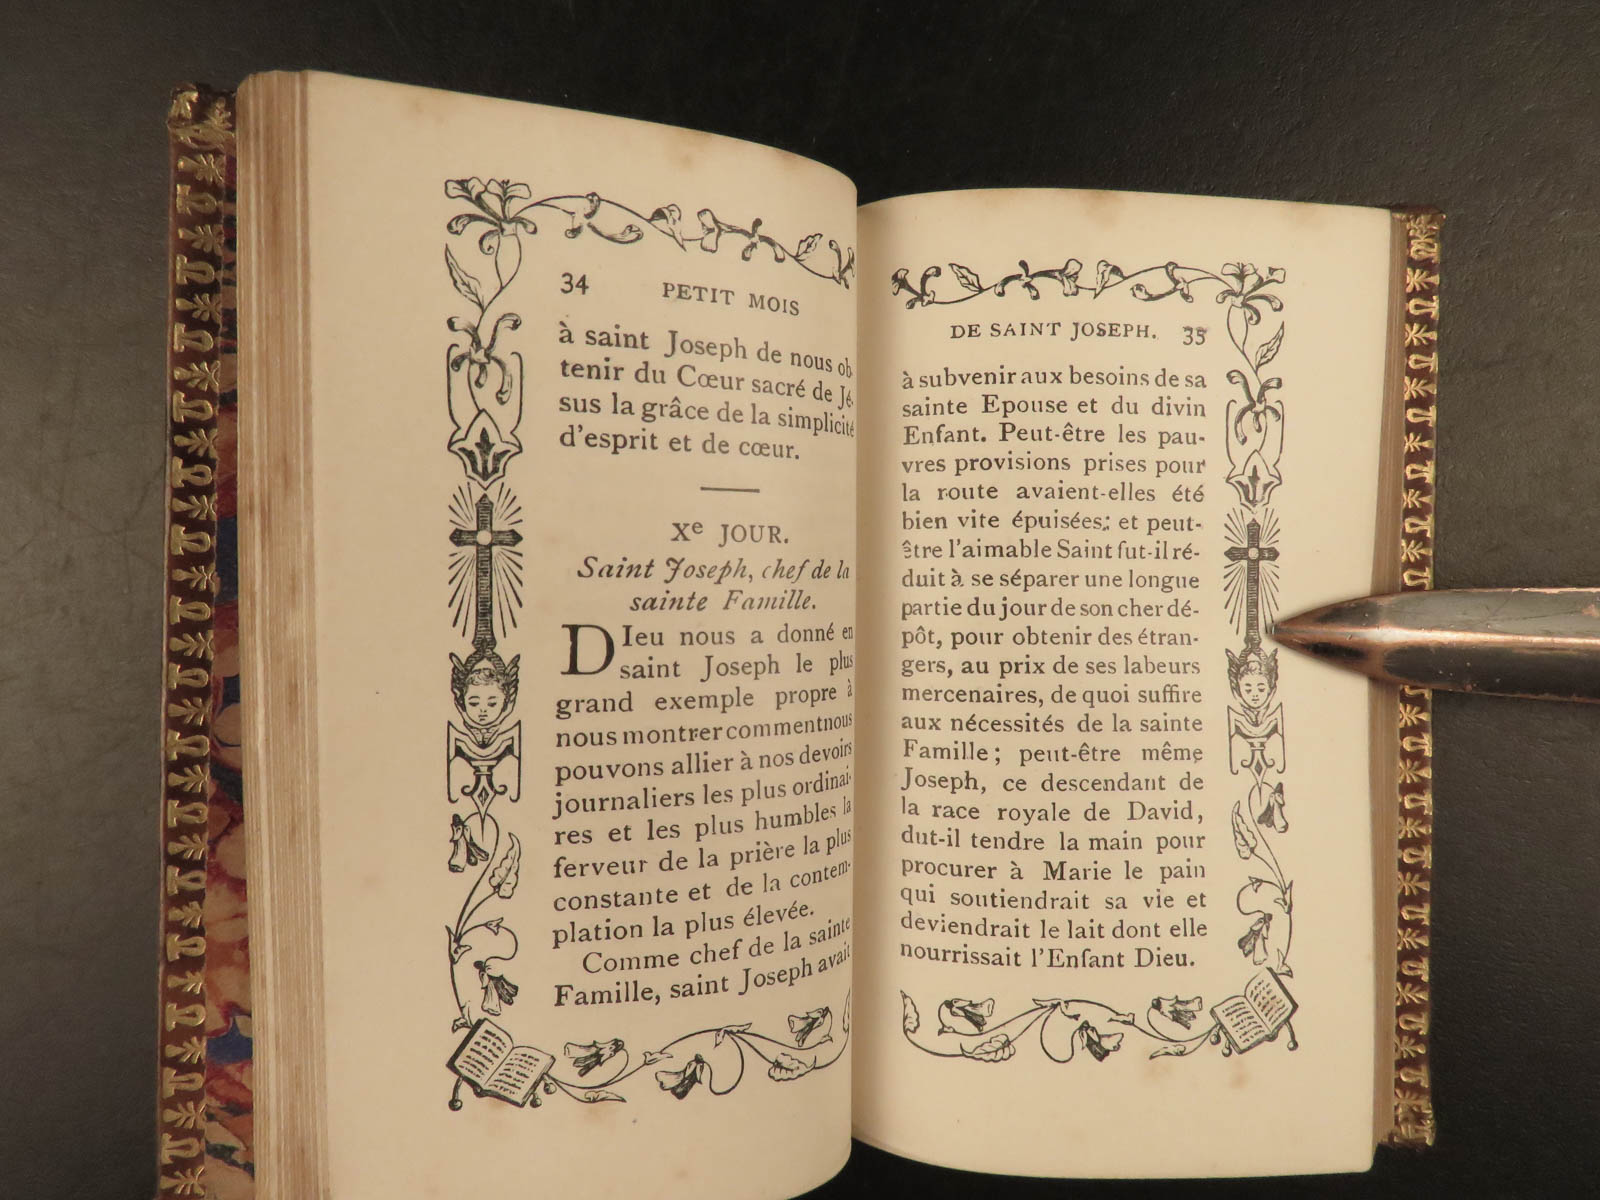 34 PETIT MOIS
à saint Joseph de nous ob-
tenir du Cœur sacré de Jé-
sus la grâce de la simplicité
d'esprit et de cœur.
Xe JOUR.
Saint Joseph, chef de la
sainte Famille.
DIeu nous a donné en
saint Joseph le plus
grand exemple propre à
nous montrer comment nous
pouvons allier à nos devoirs
journaliers les plus ordinai-
res et les plus humbles la
ferveur de la prière la plus
constante et de la contem-
plation la plus élevée.
Comme chef de la sainte
Famille, saint Joseph avait
DE SAINT JOSEPH. 35
à subvenir aux besoins de sa
sainte Epouse et du divin
Enfant. Peut-être les pau-
vres provisions prises pour
la route avaient-elles été
bien vite épuisées; et peut-
être l'aimable Saint fut-il ré-
duit à se séparer une longue
partie du jour de son cher dé-
pôt, pour obtenir des étran-
gers, au prix de ses labeurs
mercenaires, de quoi suffire
aux nécessités de la sainte
Famille; peut-être même
Joseph, ce descendant de
la race royale de David,
dut-il tendre la main pour
procurer à Marie le pain
qui soutiendrait sa vie et
deviendrait le lait dont elle
nourrissait l'Enfant Dieu.